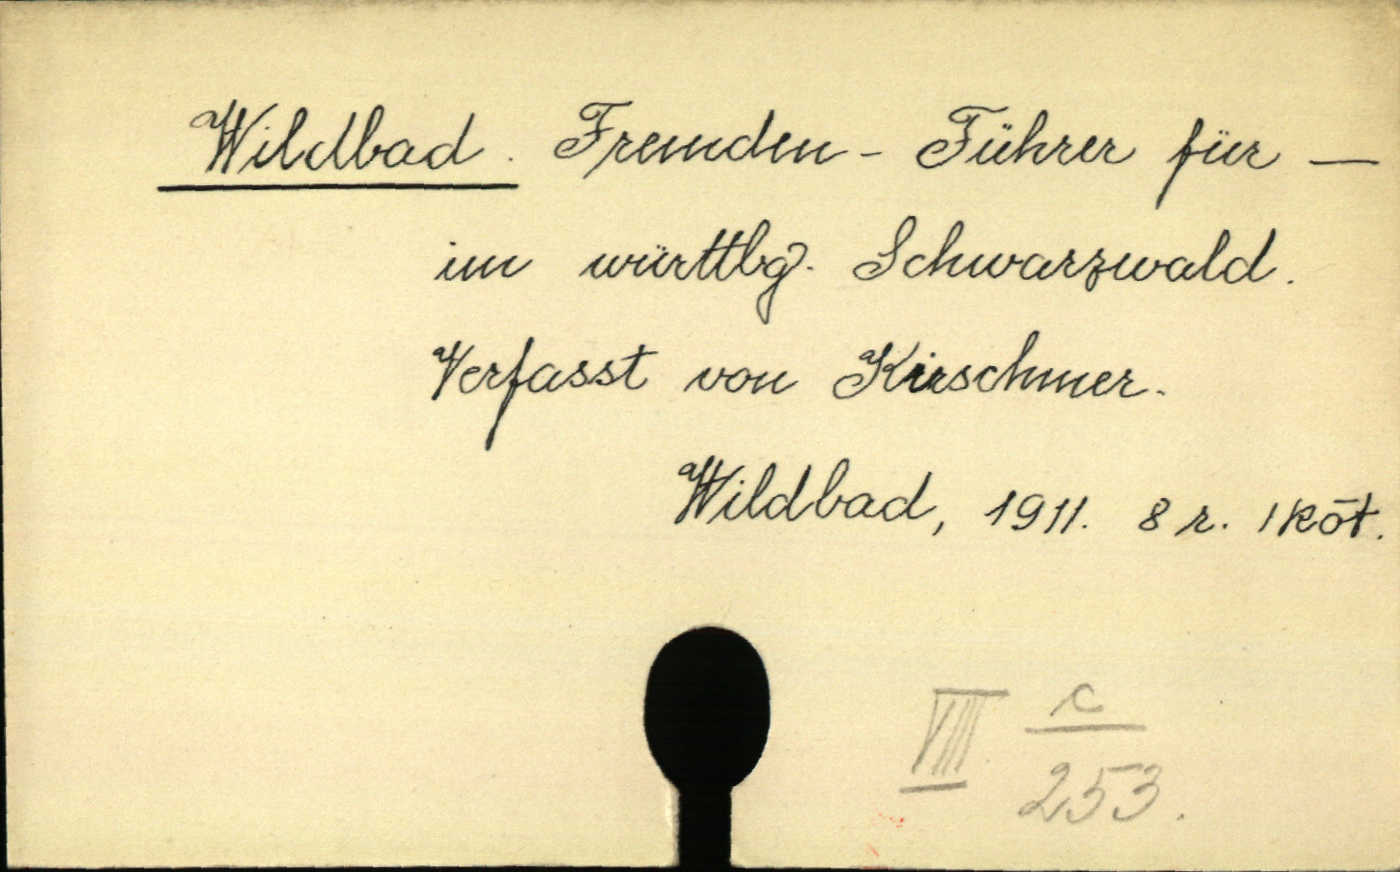 Wildbad. Fremden-Führer für —
im württbg. Schwarzwald.
Verfasst von Kirschmer.
Wildbad, 1911. 8 r. 1 köt.
VIII c/253.